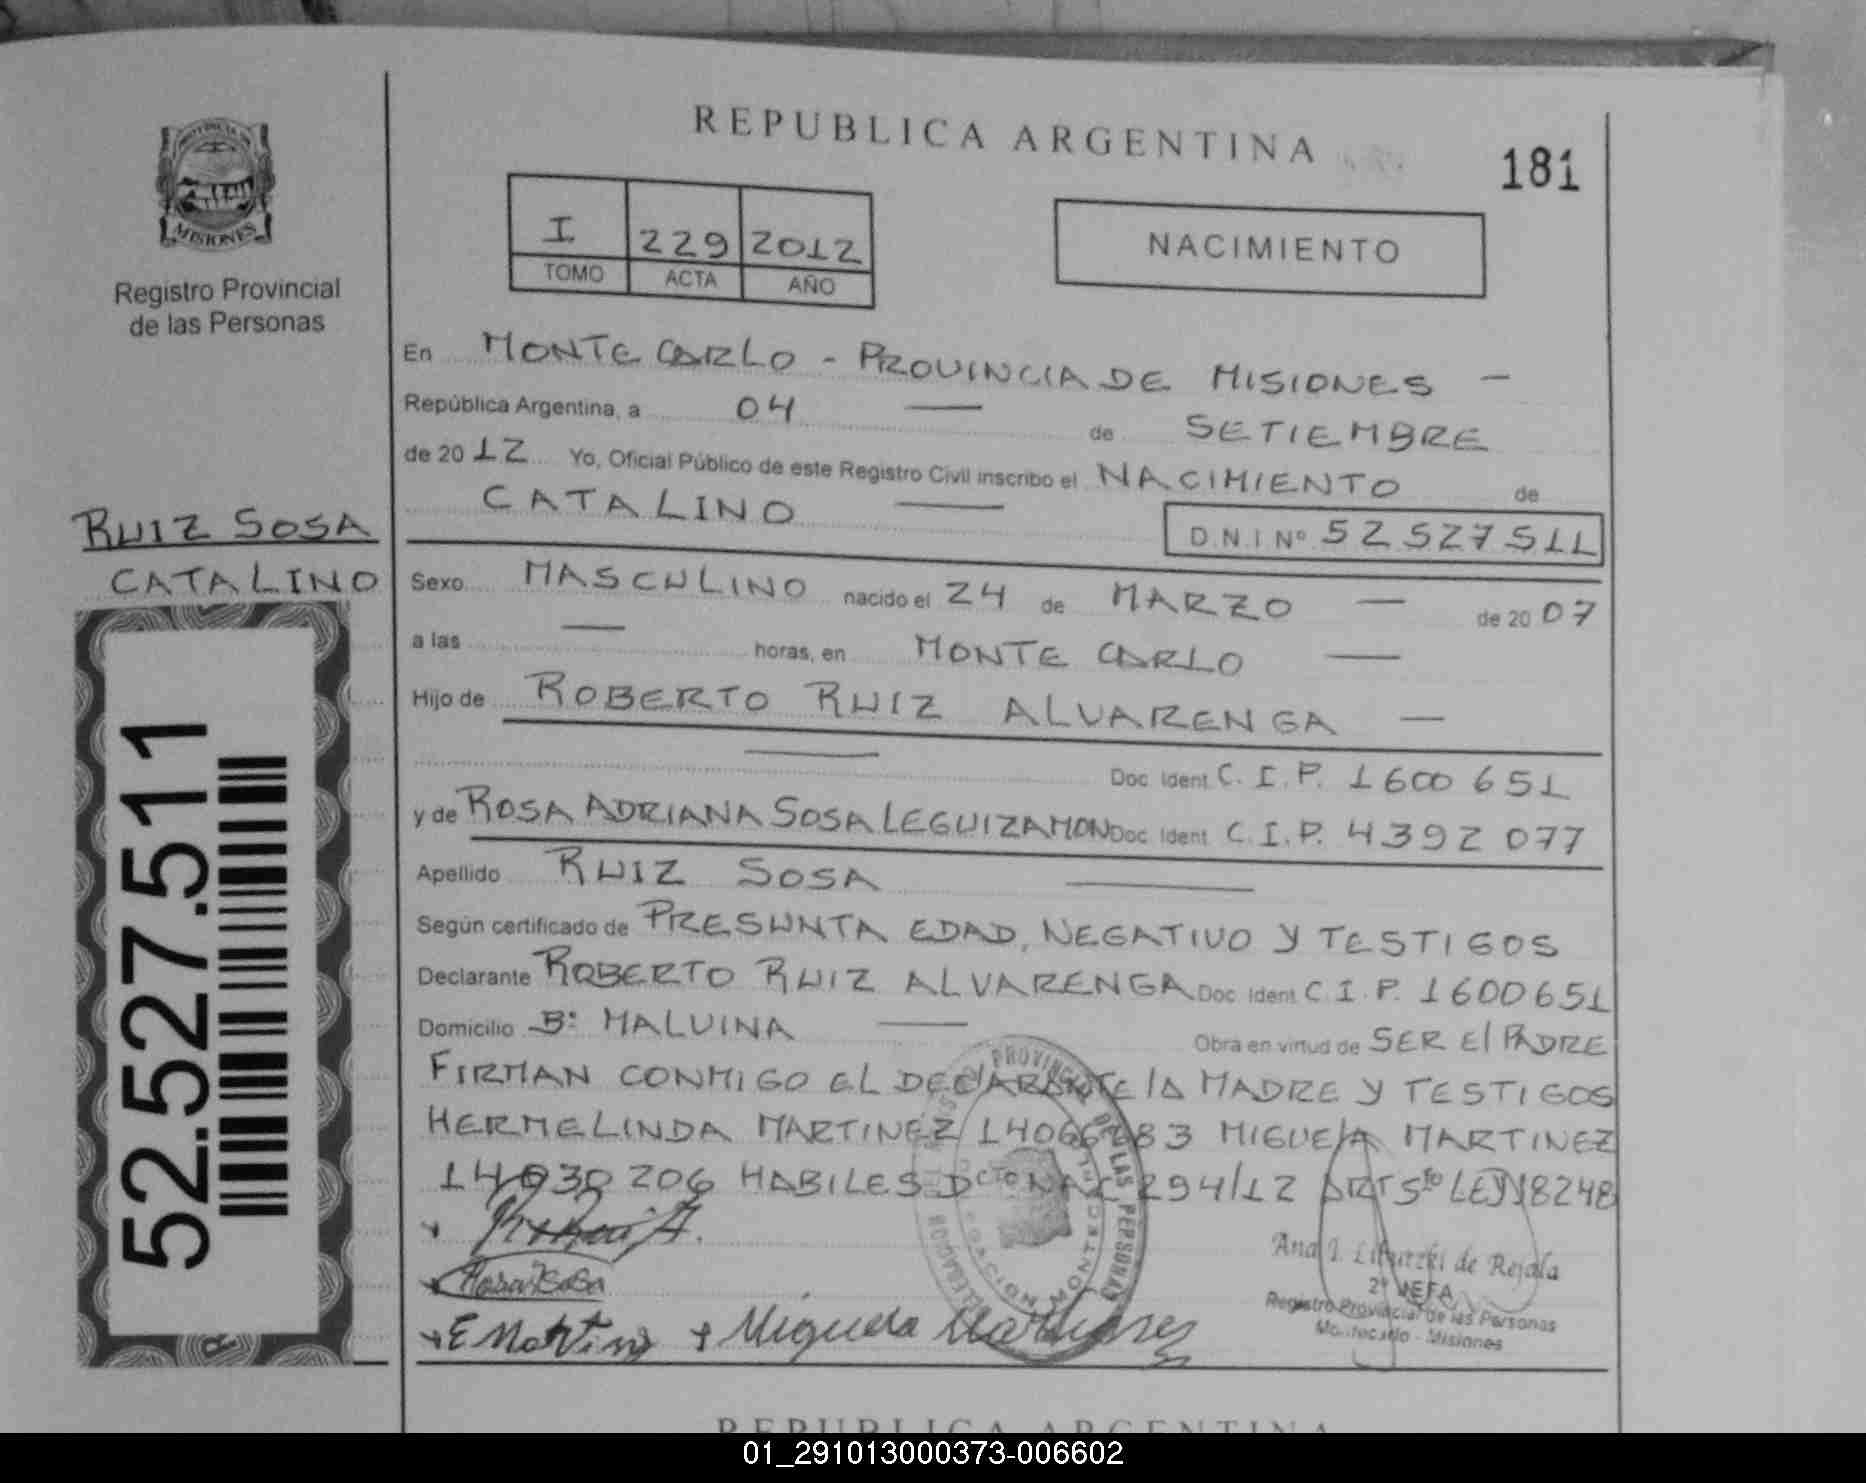 REPUBLICA ARGENTINA
181
PROVINCIA DE
MISIONES
Registro Provincial
de las Personas
I 229 2012
TOMO ACTA AÑO
NACIMIENTO
En MONTECARLO - PROVINCIA DE MISIONES -
República Argentina, a 04 — de SETIEMBRE
de 2012 Yo, Oficial Público de este Registro Civil inscribo el NACIMIENTO de
CATALINO — D.N.I Nº 52527511
RUIZ SOSA
CATALINO
Sexo MASCULINO nacido el 24 de MARZO — de 2007
a las — horas, en MONTE CARLO —
Hijo de ROBERTO RUIZ ALVARENGA —
— Doc. Ident C.I.P. 1600651
y de ROSA ADRIANA SOSA LEGUIZAMON Doc. Ident. C.I.P. 4392077
Apellido RUIZ SOSA —
Según certificado de PRESUNTA EDAD, NEGATIVO Y TESTIGOS
Declarante ROBERTO RUIZ ALVARENGA Doc. Ident C.I.P. 1600651
Domicilio Bº MALVINA — Obra en virtud de SER El PADRE
FIRMAN CONMIGO EL DEClARANTE lA MADRE Y TESTIGOS
HERMELINDA MARTINEZ MIGUElA MARTINEZ
206 HABILES DctO NAC 294/12 ART 5to LEY 18248
Rosa Sosa
E Martinez + Miguela Martinez
Ana I. de Rejala
2º JEFA
Registro Provincial de las Personas
Montecarlo - Misiones
52.527.511
REPUBLICA ARGENTINA
01_291013000373-006602